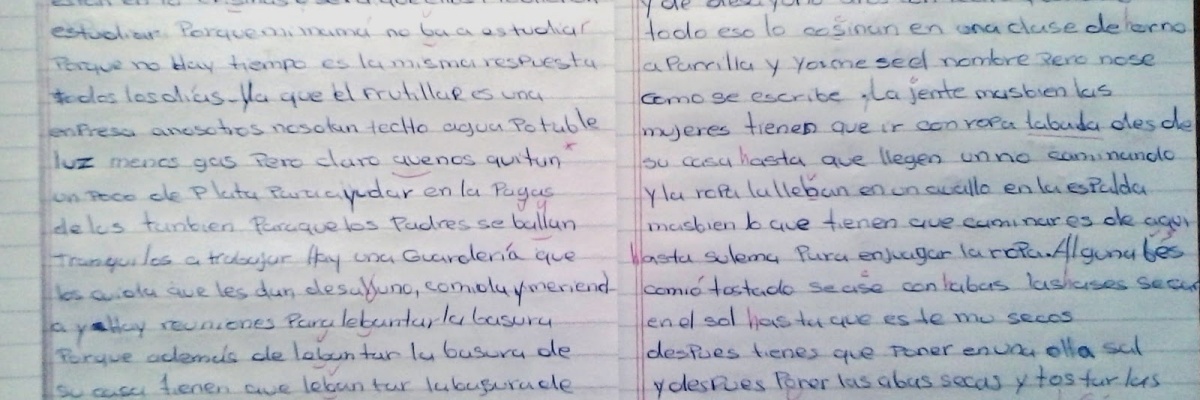 estudiar. Porque mi mamá no ba a estudiar
Porque no Hay tiempo es la misma respuesta
todos los días - Ya que El Frutillar es una
enPresa anosotros nos dan techo agua Potable
luz menos gas Pero claro quenos quitan
un Poco de Plata Para ayudar en la Pagas
de las tanbien Paraque los Padres se ballan
tranquilos a trabajar Hay una Guardería que
los cuida que les dan desalluno, comida y meriend
a y Hay reuniones Para lebantar la basura
Porque además de lebantar la basura de
su casa tienen que lebantar la basura de
todo eso lo cosinan en una clase de orno
a Parrilla y Yo me se el nombre Pero nose
como se escribe, La jente masbien las
mujeres tienen que ir con ropa labada desde
su casa hasta que llegen unno caminando
Y la ropa la lleban en un cuallo en la espalda
masbien lo que tienen que caminar es de aqui
hasta salema Para enjuagar la ropa. Alguna bes
comió tostado se ase con labas las ases secar
en el sol hasta que es te mu secos
despues tienes que poner en una olla sal
y despues Poner las abas secas y tostar las